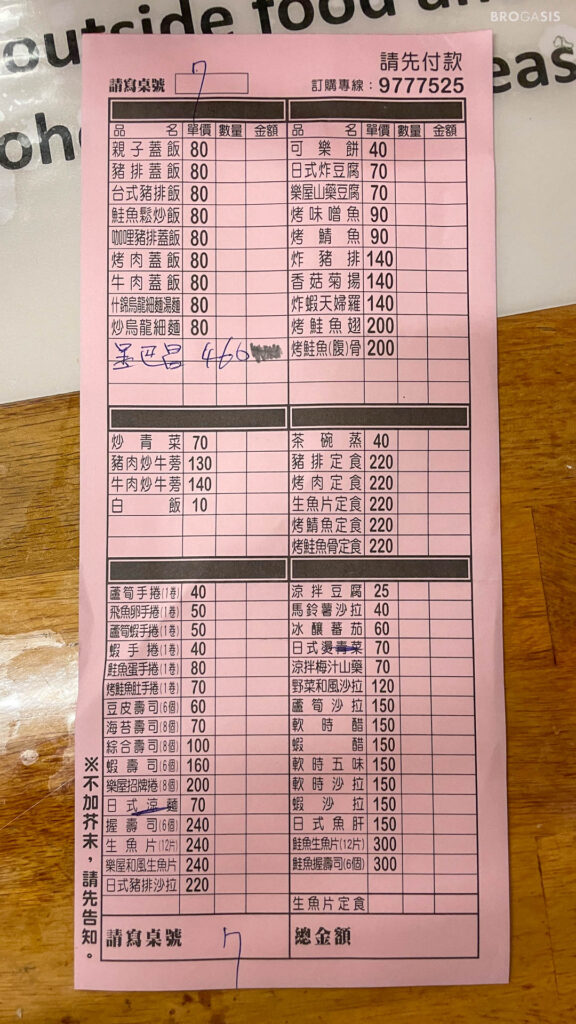 BROGASIS
outside food an
eas
ohe
請先付款
請寫桌號 7
訂購專線：9777525
品名 單價 數量 金額
親子蓋飯 80
豬排蓋飯 80
台式豬排飯 80
鮭魚鬆炒飯 80
咖哩豬排蓋飯 80
烤肉蓋飯 80
牛肉蓋飯 80
什錦烏龍細麵湯麵 80
炒烏龍細麵 80
巴昌 460
品名 單價 數量 金額
可樂餅 40
日式炸豆腐 70
樂屋山藥豆腐 70
烤味噌魚 90
烤鯖魚 90
炸豬排 140
香菇菊揚 140
炸蝦天婦羅 140
烤鮭魚翅 200
烤鮭魚(腹)骨 200
炒青菜 70
豬肉炒牛蒡 130
牛肉炒牛蒡 140
白飯 10
茶碗蒸 40
豬排定食 220
烤肉定食 220
生魚片定食 220
烤鯖魚定食 220
烤鮭魚骨定食 220
蘆筍手捲(1卷) 40
飛魚卵手捲(1卷) 50
蘆筍蝦手捲(1卷) 50
蝦手捲(1卷) 40
鮭魚蛋手捲(1卷) 80
烤鮭魚肚手捲(1卷) 70
豆皮壽司(6個) 60
海苔壽司(8個) 70
綜合壽司(8個) 100
蝦壽司(6個) 160
樂屋招牌捲(8個) 200
日式涼麵 70
握壽司(6個) 240
生魚片(12片) 240
樂屋和風生魚片 240
日式豬排沙拉 220
涼拌豆腐 25
馬鈴薯沙拉 40
冰釀蕃茄 60
日式燙青菜 70
涼拌梅汁山藥 70
野菜和風沙拉 120
蘆筍沙拉 150
軟時醋 150
蝦醋 150
軟時五味 150
軟時沙拉 150
蝦沙拉 150
日式魚肝 150
鮭魚生魚片(12片) 300
鮭魚握壽司(6個) 300
生魚片定食
※不加芥末，請先告知。
請寫桌號 7
總金額